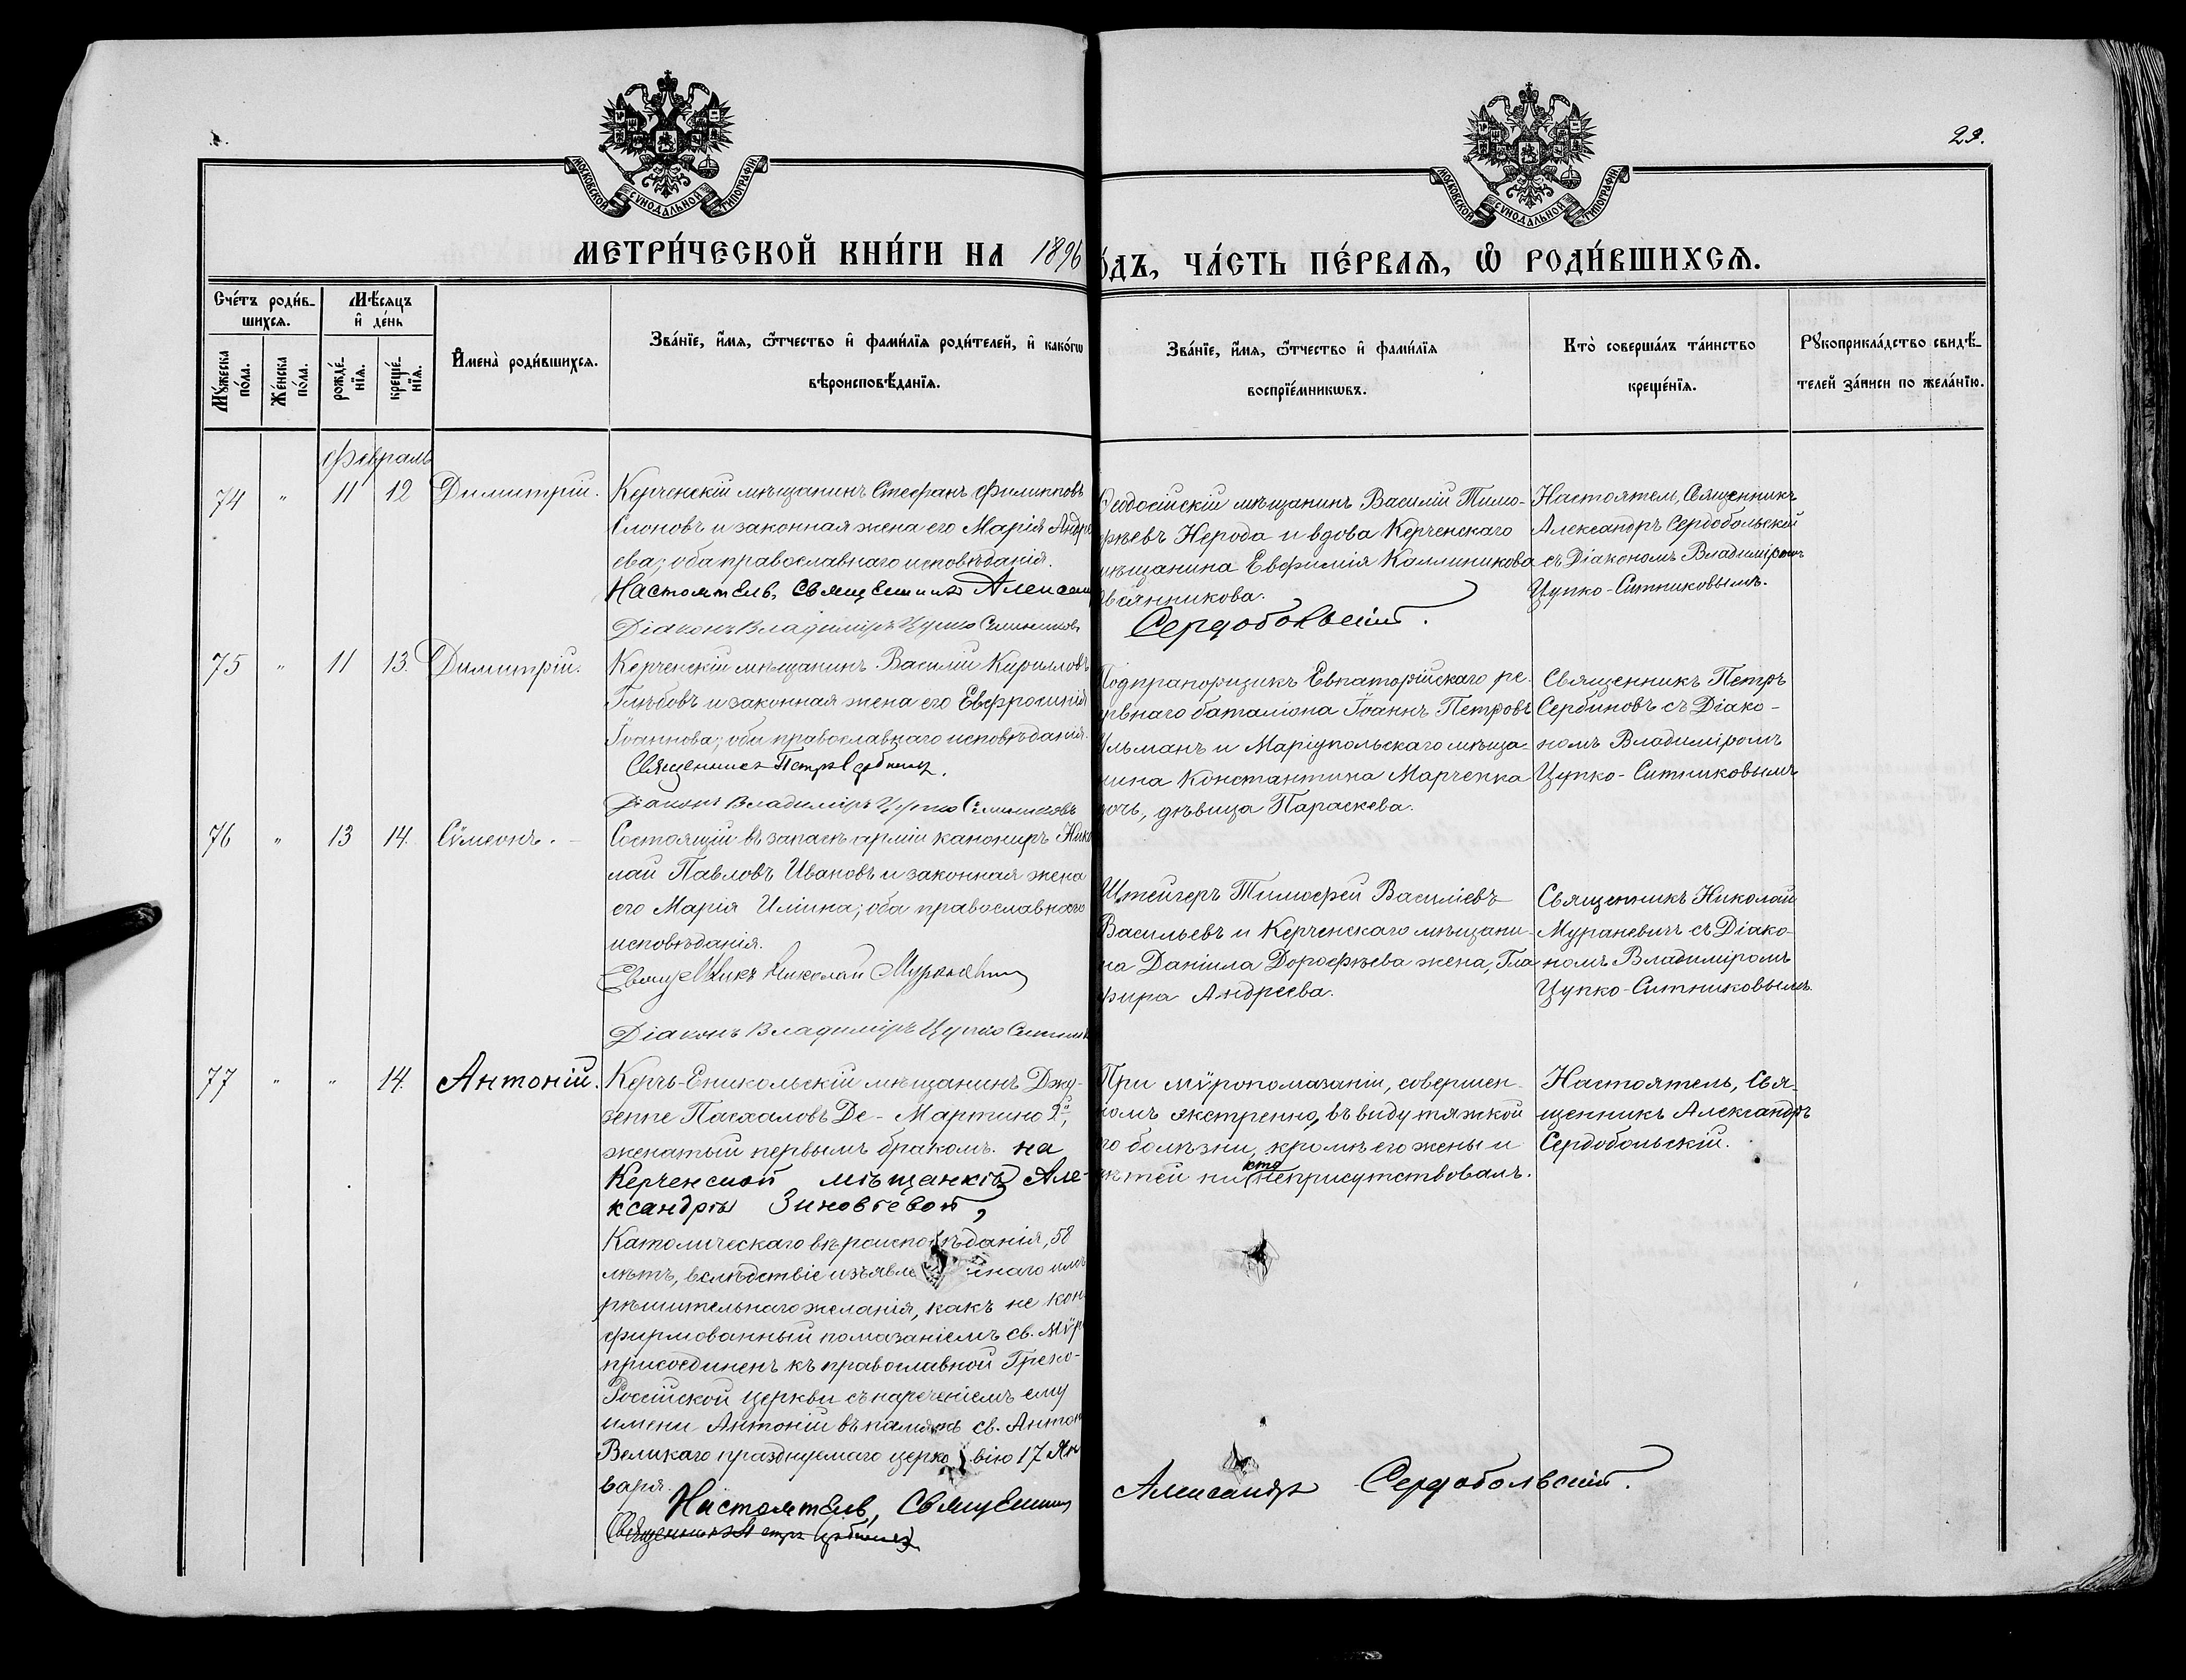 23.
МОСКОВСКОЙ СѴНОДАЛЬНОЙ ТИПОГРАФІИ
МОСКОВСКОЙ СѴНОДАЛЬНОЙ ТИПОГРАФІИ
МЕТРИ́ЧЕСКОЙ КНИ́ГИ НА 1896
о́дъ, ЧА́СТЬ ПЕ́РВАѦ, Ѡ РОДИ́ВШИХСѦ.
Сче́тъ роди́в-
шихсѧ.
Мѣ́сѧцъ
и҆ де́нь
Мꙋ́жеска
по́ла.
Же́нска
по́ла.
рожде́-
нїѧ.
креще́-
нїѧ.
И҆мена̀ роди́вшихсѧ.
Зва́нїе, и҆́мѧ, ѻ҆́тчество и҆ фами́лїѧ роди́телей, и҆ како́гѡ
вѣроисповѣ́данїѧ.
Зва́нїе, и҆́мѧ, ѻ҆́тчество и҆ фами́лїѧ
воспрїе́мникѡвъ.
Кто̀ соверша́лъ та́инство
креще́нїѧ.
Рꙋкоприкла́дство свидѣ́-
телей за́писи по жела́нїю.
Февраль
74 " 11 12 Димитрій.
Керченскій мѣщанинъ Стефанъ Филипповъ
Слоновъ и законная жена его Марія Андре
ева; оба православнаго исповѣданія.
Настоятель, Священникъ Александ
Діаконъ Владиміръ Цупко Ситников
Ѳеодосійскій мѣщанинъ Василій Тимо-
ѳѣевъ Нерода и вдова Керченскаго
мѣщанина Евфимія Каллиникова
Сердобольскій.
Настоятель, Священникъ
Александръ Сердобольскій
съ Діакономъ Владиміромъ
Цупко-Ситниковымъ.
75 " 11 13. Димитрій.
Керченскій мѣщанинъ Василій Кирилловъ
Глѣбовъ и законная жена его Евфросинія
Іоаннова; оба православнаго исповѣданія.
Священникъ Петръ Сербинов.
Діаконъ Владиміръ Цупко Ситниковъ
Подпрапорщикъ Евпаторійскаго ре-
рвнаго баталіона Іоаннъ Петровъ
ульманъ и Маріупольскаго мѣща-
нина Константина Марченка
дочь, дѣвица Параскева.
Священникъ Петръ
Сербиновъ съ Діако-
номъ Владиміромъ
Цупко-Ситниковымъ
76 " 13 14. Сѵмеонъ.
Состоящій въ запасѣ арміи канониръ Нико
лай Павловъ Ивановъ и законная жена
его Марія Иліина; оба православнаго
исповѣданія.
Священникъ Николай Мураневич
Діаконъ Владиміръ Цупко Ситник
Штейгеръ Тимоѳей Василіевъ
Васильевъ и Керченскаго мѣщани-
на Даніила Дороѳѣева жена, Гла
фира Андреева.
Священникъ Николай
Мураневичъ съ Діако-
номъ Владиміромъ
Цупко-Ситниковымъ.
77 " " 14. Антоній.
Керчь-Еникольскій мѣщанинъ Джу-
зеппе Пасхаловъ Де-Мартино 2й,
женатый первымъ бракомъ на
Керченской мѣщанкѣ Але-
ксандрѣ Зиновіевой,
Католическаго вѣроисповѣданія, 58
лѣтъ, вслѣдствіе изъявле ннаго имъ
рѣшительнаго желанія, какъ не кон-
фирмованный помазаніемъ св. Мѵр
присоединенъ къ православной Греко-
Россійской церкви съ нареченіемъ ему
имени Антоній въ память св. Антон
Великаго празднуемаго церковію 17 Ян
варя.
Настоятель, Священник
Священникъ Петръ Сербинов
При мѵропомазаніи, совершен-
номъ экстренно, въ виду тяжкой
го болѣзни, кромѣ его жены и
дѣтей никто не присутствовалъ.
Александръ Сердобольскій.
Настоятель, Свя-
щенникъ Александръ
Сердобольскій.